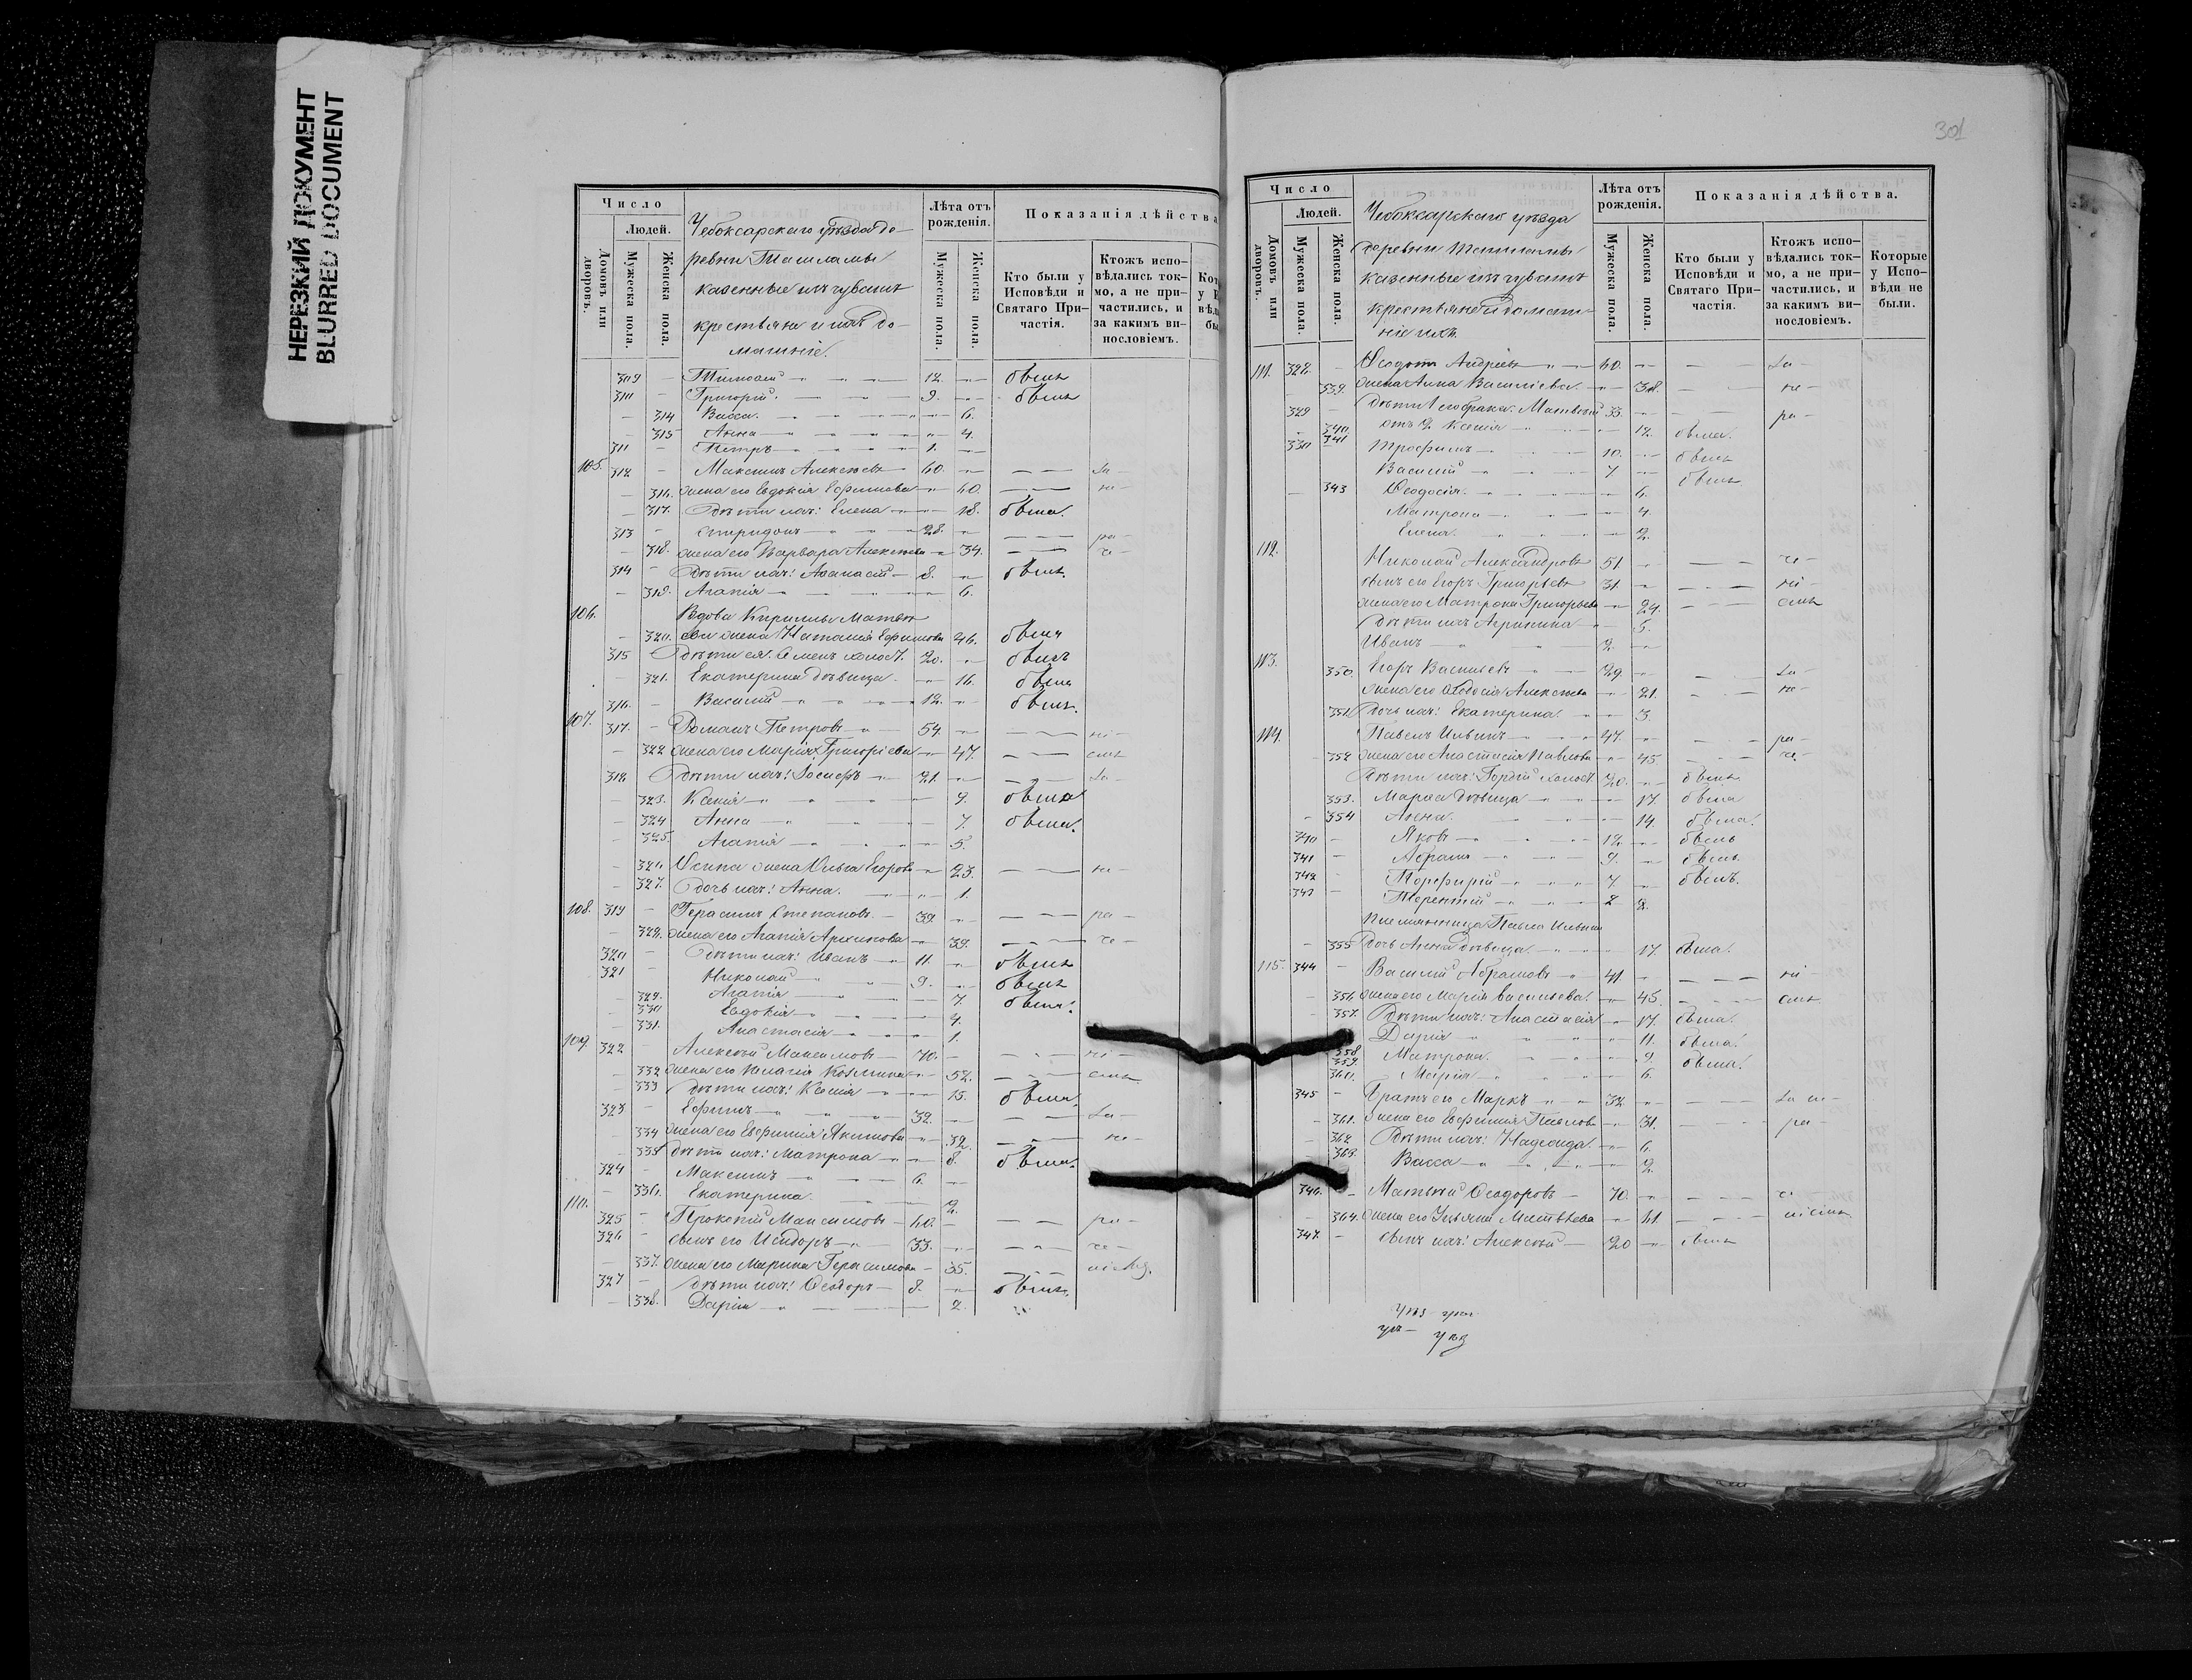 НЕРЕЗКИЙ ДОКУМЕНТ
BLURRED DOCUMENT
Число
Людей.
Домовъ или дворовъ.
Мужеска пола.
Женска пола.
Чебоксарскаго уѣзда де-
ревни
казенные изъ чувашъ
крестьяне и ихъ до-
машніе.
Лѣта отъ рожденія.
Мужеска пола.
Женска пола.
Показанія дѣйства
Кто были у Исповѣди и Святаго Причастія.
Ктожъ исповѣдались токмо, а не причастились, и за какимъ винословіемъ.
309 Тимофей 12. былъ
310 Григорій 9. былъ
314 Васса 6.
315 Анна 4.
311 Петръ 1.
105. 312 Максимъ Алексѣевъ 60. За
316. жена его Евдокія Ефимова 60. не
317. дѣти ихъ: Елена 18. была.
313 Спиридонъ 28. ра
318. жена его Варвара Алексѣева 34. че
314 дѣти ихъ: Афанасій 8. былъ
319. Агапія 6.
106. Вдова Кириллы Матвѣ-
320. ева жена Наталія Ефимова 46. была
315 дѣти ея: Семенъ холостъ. 20. былъ
321. Екатерина дѣвица. 16. была
316. Василій 12. былъ.
107. 317. Романъ Петровъ 54. ні
322 жена его Марія Григорьева 47. емъ
318. дѣти ихъ: Іосифъ 21. За
323. Ксенія 9. была
324 Анна 7. была.
325. Агапія 5.
326. Осипа жена Ольга Егорова 23. не
327. дочь ихъ: Анна. 1.
108. 319 Герасимъ Степановъ. 39. ра
328. жена его Агапія Архипова 39. че
320 дѣти ихъ: Иванъ 11. былъ
321 Николай 9. былъ
329. Агапія 7. была.
330 Евдокія 4.
331. Анастасія 1.
109. 322 Алексѣй Максимовъ 70. ні
332 жена его Пелагія Козмина 52. емъ
333 дѣти ихъ: Ксенія 15. была.
323 Ефимъ 32. За
334 жена его Евфимія Якимова 32. не
335 дѣти ихъ: Матрона 8. была.
324 Максимъ 6.
336. Екатерина. 2.
110. 325 Прокопій Максимовъ 60. ра
326 сынъ его Исидоръ 33. че
337. жена его Марина Герасимова 35.
327 дѣти ихъ: Ѳеодоръ 8. былъ.
338. Дарія 2.
301
Число
Людей.
Домовъ или дворовъ.
Мужеска пола.
Женска пола.
Чебоксарскаго уѣзда
деревни
казенные изъ чувашъ
крестьяне и домаш-
ніе ихъ.
Лѣта отъ рожденія.
Мужеска пола.
Женска пола.
Показанія дѣйства.
Кто были у Исповѣди и Святаго Причастія.
Ктожъ исповѣдались токмо, а не причастились, и за какимъ винословіемъ.
Которые у Исповѣди не были.
111. 328. Ѳеодотъ Андреевъ 60. За
339. жена Анна Василіева. 38. не
329 дѣти 1 его брака: Матвѣй 33. ра
340. отъ 2. Ксенія 12. была.
330 341 Трофимъ 10. былъ
Василій 7 былъ
343 Ѳеодосія. 6.
Матрона 4.
Елена. 2.
112. Николай Александровъ 51 че
сынъ его Егоръ Григорьевъ 31. ні
жена его Матрона Григорьева 24. емъ
дѣти ихъ Агрипина 5.
Иванъ 2.
113. 350. Егоръ Васильевъ 29. За
жена его Ѳеодосія Алексѣева 21. не
351. дочь ихъ: Екатерина. 3.
114. Павелъ Ильинъ 47. ра
352 жена его Анастасія Павлова 45 че
дѣти ихъ: Гордій холостъ 20. былъ
353. Марѳа дѣвица 17. была
354 Анна. 14. была.
340 Яковъ 12. былъ
341 Абрамъ 9. былъ
342 Порфирій 7. былъ.
343 Терентій 2
Племянница Павла Ильина
355 дочь Анна дѣвица. 17. была.
115. 344 Василій Абрамовъ 41. ні
356. жена его Марія Васильева. 45. емъ
357. дѣти ихъ: Анастасія 17. была.
Дарія 11. была.
358. Матрона. 9. была.
359.
360. Марія 6.
345 Братъ его Маркъ 32
361. жена его Евфимія Павлова 31. ра
362. дѣти ихъ: Надежда. 6.
363. Васса 2.
346. Матвѣй Ѳеодоровъ 70.
364. жена его Ульяна Матвѣева 61.
347. сынъ ихъ: Алексѣй 20 былъ